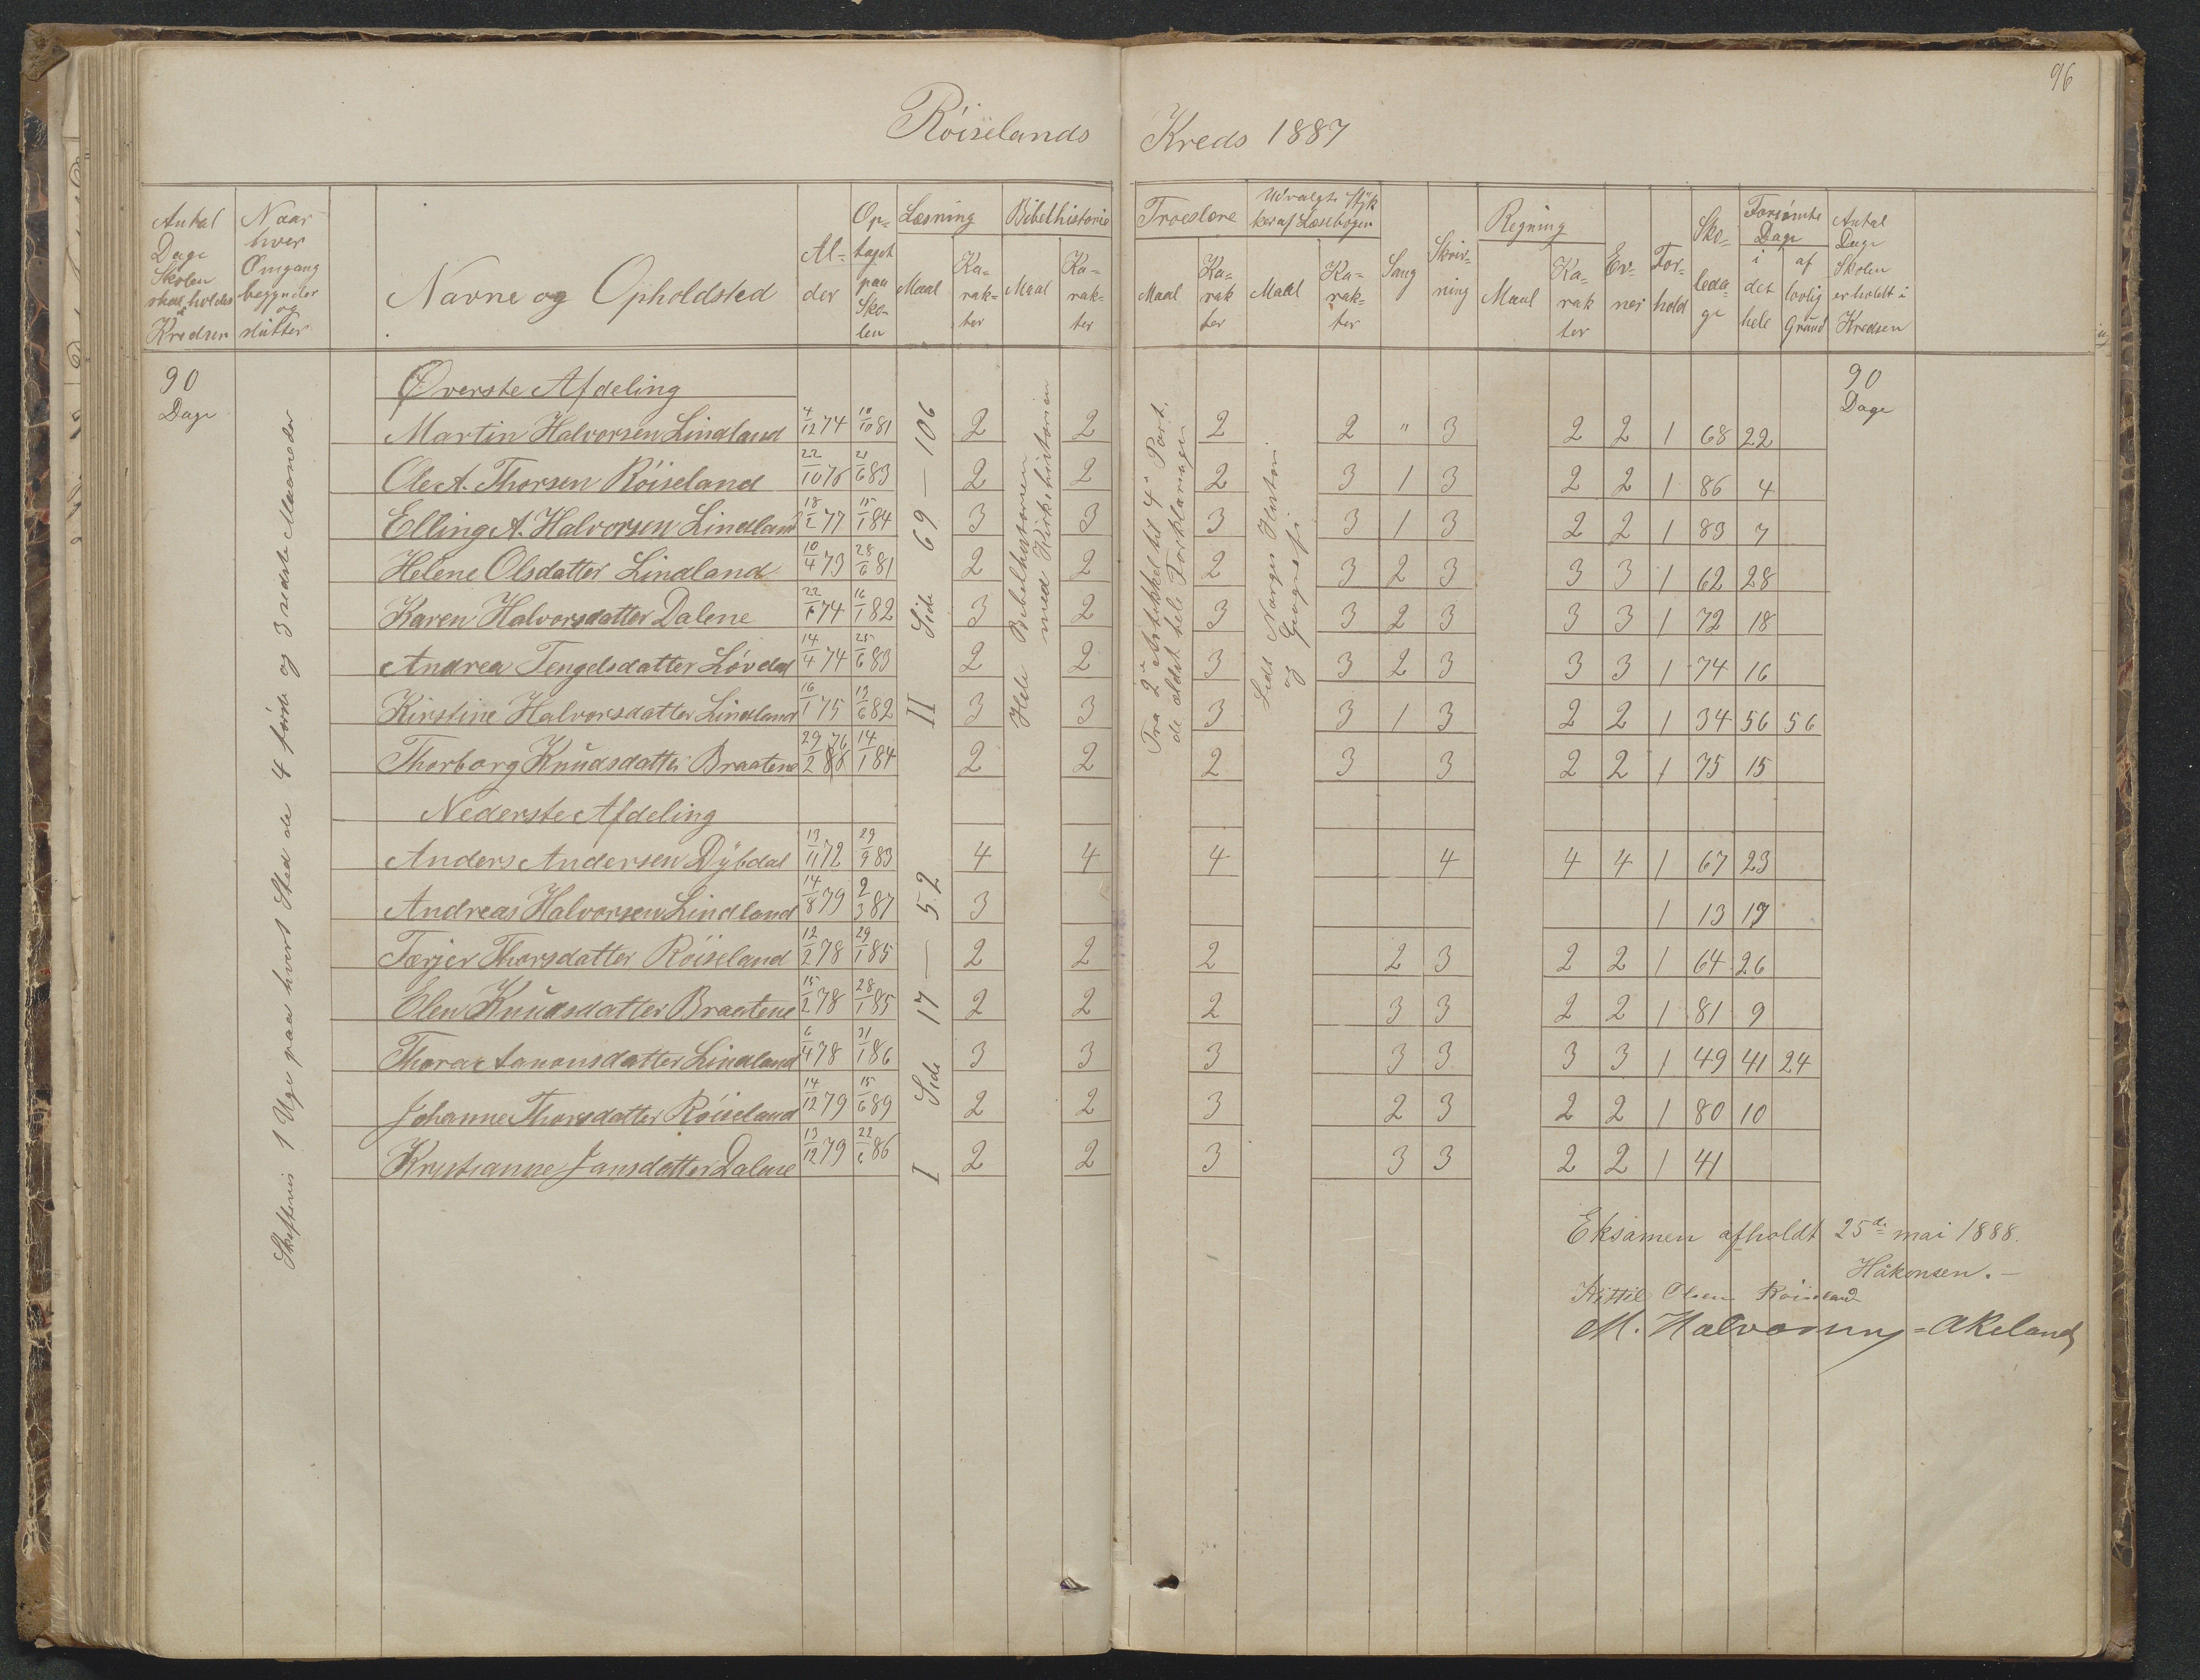 96
Röiselands Kreds 1887
Antal Dage Skolen skal holdes i Kredsen | Naar hver Omgang begynder og slutter | Navne og Opholdsted | Alder | Optaget paa Skolen | Læsning Maal Karakter | Bibelhistorie Maal Karakter | Troeslære Maal Karakter | Udvalgte Stykker af Læsebogen Maal Karakter | Sang | Skrivning | Regning Maal Karakter | Evner | Forhold | Skoledage | Forsømte Dage i det hele | af lovlig Grund | Antal Dage Skolen er holdt i Kredsen
90 Dage
90 Dage
Skiftevis 1 Uge paa hvert Sted de 4 første og 3 sidste Maaneder
II Side 69 — 106
Hele Bibelhistorien med Kirkehistorien
Fra 2n Artikkel til 4e Part. de ældst hele Forklaringen
Lidt Norges Historie og Geografi
Øverste Afdeling
Martin Halvorsen Lindland 4/12 74 10/10 81 2 2 2 2 " 3 2 2 1 68 22
Ole A. Thorsen Röiseland 22/10 76 21/6 83 2 2 2 3 1 3 2 2 1 86 4
Elling A. Halvorsen Lindland 18/1 77 15/1 84 3 3 3 3 1 3 2 2 1 83 7
Helene Olsdatter Lindland 10/4 73 28/6 81 2 2 2 3 2 3 3 3 1 62 28
Karen Halvorsdatter Dalene 22/6 74 16/1 82 3 2 3 3 2 3 3 3 1 72 18
Andrea Tengelsdatter Lövdal 14/4 74 25/6 83 2 2 3 3 2 3 3 3 1 74 16
Kirstine Halvorsdatter Lindland 16/1 75 12/6 82 3 3 3 3 1 3 2 2 1 34 56 56
Thorborg Knudsdatter Braatene 29/2 76 14/1 84 2 2 2 3 3 2 2 1 75 15
Nederste Afdeling
I Side 17 — 52
Anders Andersen Dybdal 13/11 72 29/9 83 4 4 4 4 4 4 1 67 23
Andreas Halvorsen Lindland 14/8 79 2/3 87 3 1 13 17
Terjer Thorsdatter Röiseland 12/2 78 29/1 85 2 2 2 2 3 2 2 1 64 26
Elen Knudsdatter Braatene 15/2 78 28/1 85 2 2 2 3 3 2 2 1 81 9
Thora Aanonsdatter Lindland 6/4 78 31/1 86 3 3 3 3 3 3 3 1 49 41 24
Johanne Thorsdatter Röiseland 14/12 79 15/6 89 2 2 3 2 3 2 2 1 80 10
Kristianne Jansdatter Dalene 13/12 79 22/6 86 2 2 3 3 3 2 2 1 41
Eksamen afholdt 25de mai 1888.
Håkonsen. —
Kittil Olsen Röiseland
M. Halvorsen = Akeland